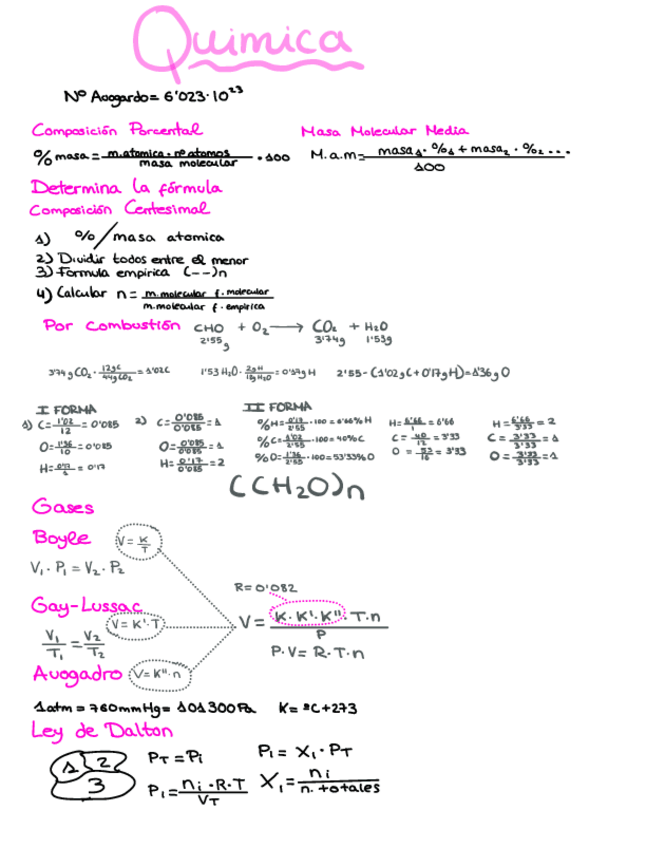 Quimica
Nº Avogardo = 6'023·10²³
Composición Porcental
% masa = m.atomica · nº atomos / masa molecular · 100
Masa Molecular Media
M.a.m = masa₁ · %₁ + masa₂ · %₂ ... / 100
Determina la fórmula
Composición Centesimal
1) % / masa atomica
2) Dividir todos entre el menor
3) Formula empírica (--)n
4) Calcular n = m.molecular f. molecular / m.molecular f. empírica
Por combustión CHO + O₂ → CO₂ + H₂O
2'55g 3'74g 1'53g
3'74 g CO₂ · 12gC / 44g CO₂ = 1'02C 1'53 H₂O · 2gH / 18g H₂O = 0'17g H 2'55 - (1'02g C + 0'17g H) = 1'36g O
I FORMA
1) C = 1'02 / 12 = 0'085
O = 1'36 / 16 = 0'085
H = 0'17 / 1 = 0'17
2) C = 0'085 / 0'085 = 1
O = 0'085 / 0'085 = 1
H = 0'17 / 0'085 = 2
II FORMA
%H = 0'17 / 2'55 · 100 = 6'66% H
%C = 1'02 / 2'55 · 100 = 40% C
%O = 1'36 / 2'55 · 100 = 53'33% O
H = 6'66 / 1 = 6'66
C = 40 / 12 = 3'33
O = 53 / 16 = 3'33
H = 6'66 / 3'33 = 2
C = 3'33 / 3'33 = 1
O = 3'33 / 3'33 = 1
(CH₂O)n
Gases
Boyle V = K / T
V₁ · P₁ = V₂ · P₂
Gay-Lussac V = K' · T
V₁ / T₁ = V₂ / T₂
Avogadro V = K'' · n
R = 0'082
V = K · K' · K'' · T · n / P
P · V = R · T · n
1atm = 760mmHg = 101300Pa K = ºC + 273
Ley de Dalton
1 2
3
P_T = P_i
P₁ = n_i · R · T / V_T
P₁ = X₁ · P_T
X₁ = n_i / n. totales